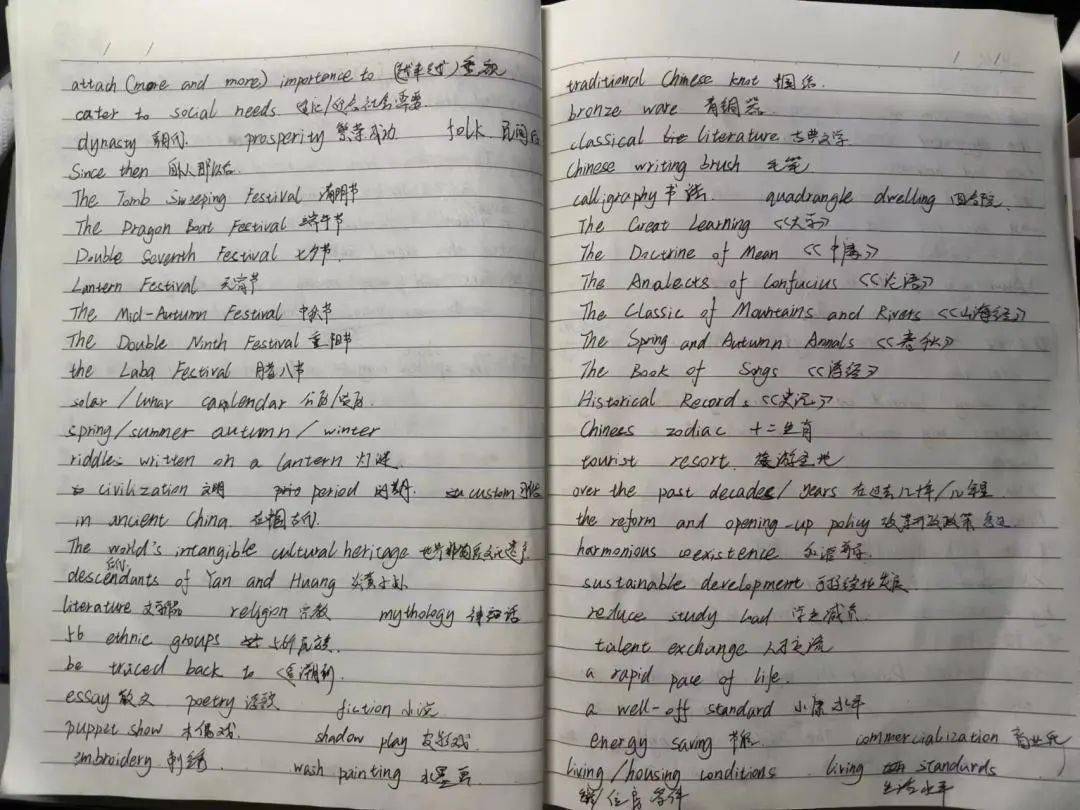 attach (more and more) importance to (越来越)重视
cater to social needs 迎合社会需要
dynasty 朝代 prosperity 繁荣成功 folk 民间
Since then 自从那以后
The Tomb Sweeping Festival 清明节
The Dragon Boat Festival 端午节
Double Seventh Festival 七夕节
Lantern Festival 元宵节
The Mid-Autumn Festival 中秋节
The Double Ninth Festival 重阳节
the Laba Festival 腊八节
solar / lunar calendar
spring/summer autumn / winter
riddles written on a lantern 灯谜
civilization 文明 period 时期 custom 习俗
in ancient China 在中国古代
The world's intangible cultural heritage 世界非物质文化遗产
descendants of Yan and Huang 炎黄子孙
后代
literature 文学作品 religion 宗教 mythology 神话
56 ethnic groups 56个民族
be traced back to 追溯到
essay 散文 poetry 诗歌 fiction 小说
puppet show 木偶戏 shadow play 皮影戏
embroidery 刺绣 wash painting 水墨画
traditional Chinese knot 中国结
bronze ware 青铜器
classical literature 古典文学
Chinese writing brush 毛笔
calligraphy 书法 quadrangle dwelling 四合院
The Great Learning 《大学》
The Doctrine of Mean 《中庸》
The Analects of Confucius 《论语》
The Classic of Mountains and Rivers 《山海经》
The Spring and Autumn Annals 《春秋》
The Book of Songs 《诗经》
Historical Records 《史记》
Chinees zodiac 十二生肖
tourist resort 旅游圣地
over the past decades / years 在过去几十年/几年里
the reform and opening-up policy 改革开放政策
harmonious coexistence 和谐共存
sustainable development 可持续性发展
reduce study load 学生减负
talent exchange 人才交流
a rapid pace of life.
a well-off standard 小康水平
energy saving 节能 commercialization 商业化
living / housing conditions living standards
住房条件 生活水平